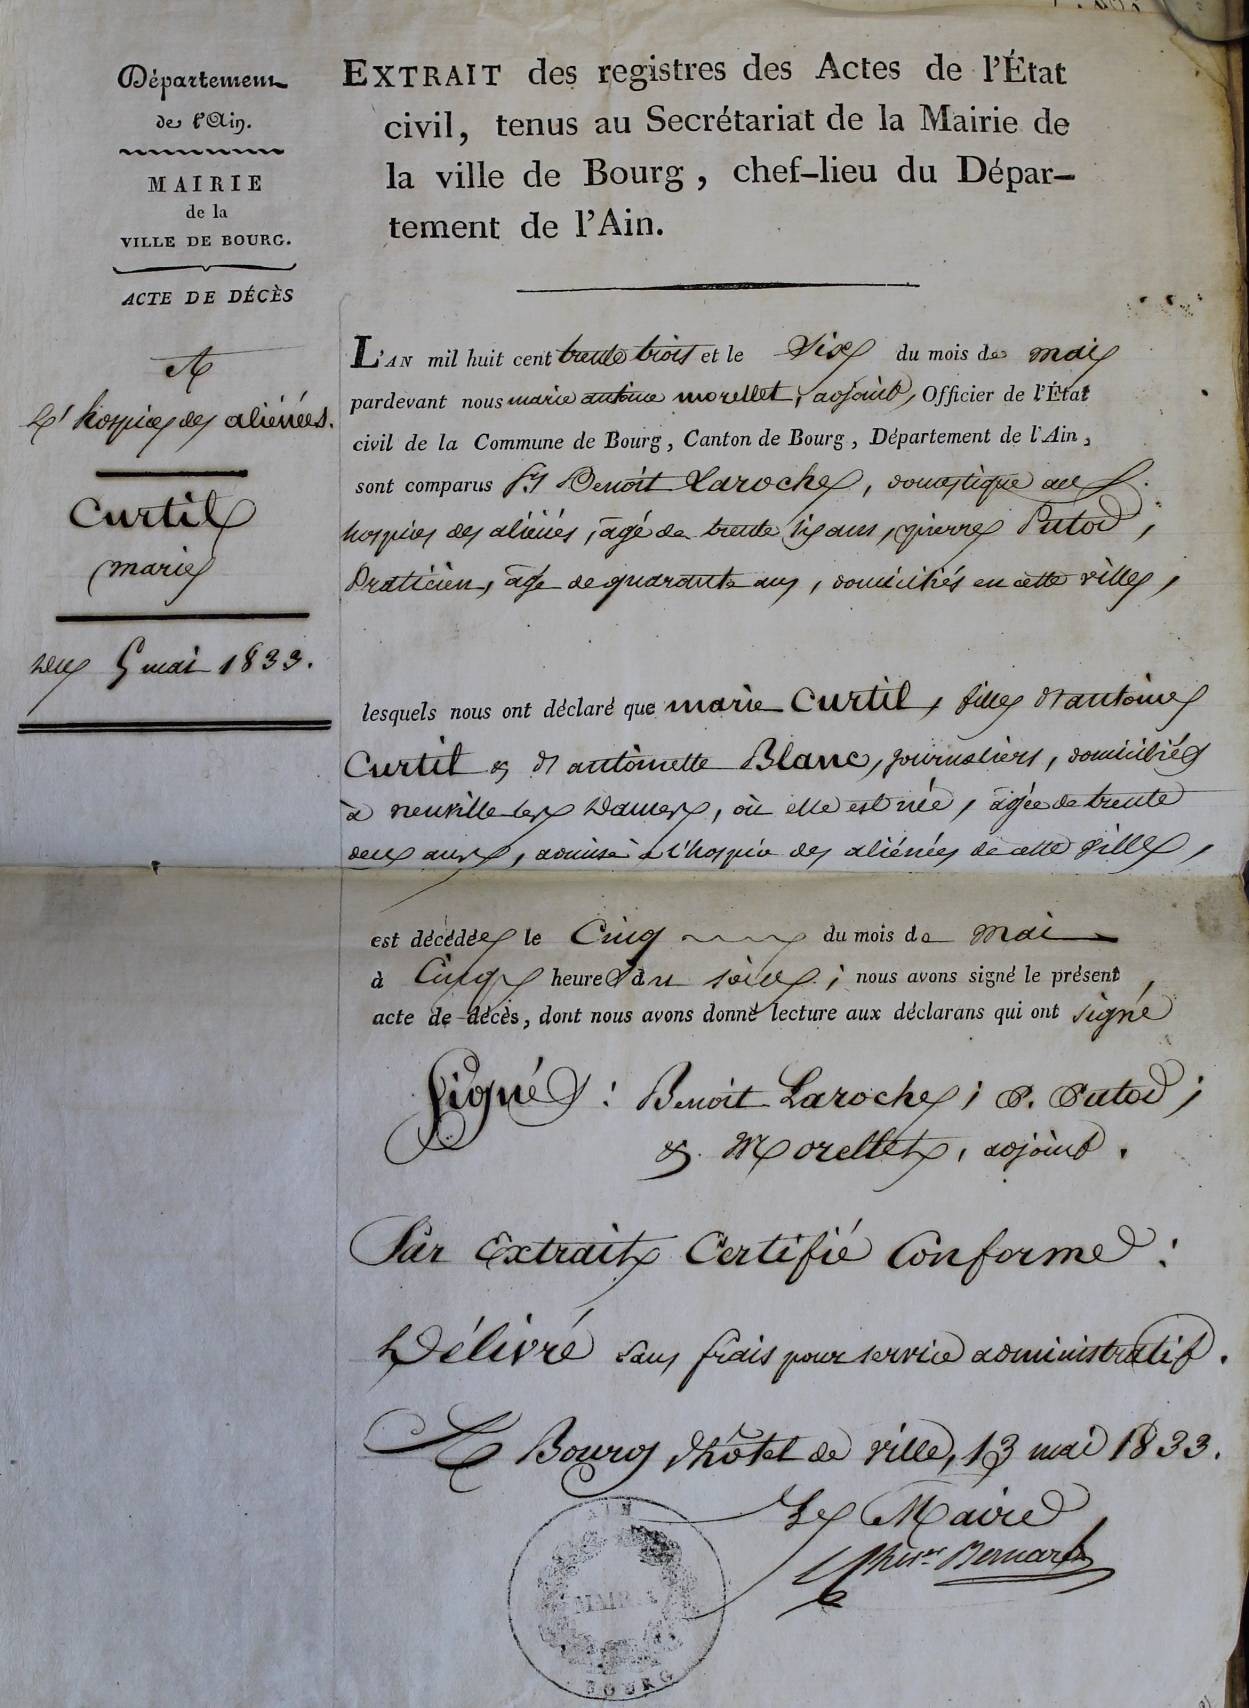 Département
de l'Ain.
MAIRIE
de la
VILLE DE BOURG.
ACTE DE DÉCÈS
A
L'hospice des aliénées.
Curtil
marie
Du 5 mai 1833.
EXTRAIT des registres des Actes de l'État
civil, tenus au Secrétariat de la Mairie de
la ville de Bourg, chef-lieu du Dépar-
tement de l'Ain.
L'AN mil huit cent trente trois et le Six du mois de mai
pardevant nous marie antoine morellet, adjoint, Officier de l'État
civil de la Commune de Bourg, Canton de Bourg, Département de l'Ain,
sont comparus Benoit Laroche, domestique au d.
hospice des aliénés, âgé de trente six ans, pierre Putod,
Praticien, âgé de quarante ans, domiciliés en cette ville,
lesquels nous ont déclaré que marie Curtil, fille d'antoine
Curtil & d'antoinette Blanc, journaliers, domiciliés
à neuville les Dames, où elle est née, âgée de trente
deux ans, admise à l'hospice des aliénées de cette ville,
est décédée le Cinq du mois de mai
à Cinq heures du soir; nous avons signé le présent
acte de décès, dont nous avons donné lecture aux déclarans qui ont signé
Signé: Benoit Laroche; P. Putod;
& Morellet, adjoint.
Par Extrait Certifié Conforme:
Délivré sans frais pour service administratif.
A Bourg d'hôtel de ville, 13 mai 1833.
Le Maire
Cher. Bernard
AIN
MAIRIE
BOURG